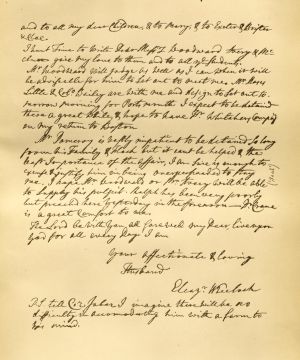 and to all my dear Children, & to Mary, & to Exeter & Dinfter
& Cloe.
I have Time to Write Dear Mrs. Woodward Avery & Mc
clure give my love to them and to all my Students.
Mr. Woodward will judge by Letter as I can when it will
be adviseable for him to set out to meet me. Mr.
Little & Col. Bailey are with me and design to set out to
morrow morning for Portsmouth I expect to be detained
there a great while, & hope to have Mr. Whitakers Company
on my return to Boston
Mr. Pomeroy is vastly impatient to be detained so long
from his Family & Flock but it cant be helped & the
vast Importance of the affair, I am sure is enough to
& justify him in being to
me. I hope Mr. Woodward or Mr. Avery will be able
to supply his pulpit. Ralph has been very poorly
but preached here yesterday in the forenoon. Mr. Crane
is a great Comfort to me.
The Lord be with you all. Farewell my Dear live upon
God for all every Day. I am
Your affectionate & loving
Husband
Eleazr. Wheelock
P.S. tell Jabez I imagine there will be no
difficulty in accommodating him with a farm to
his mind.